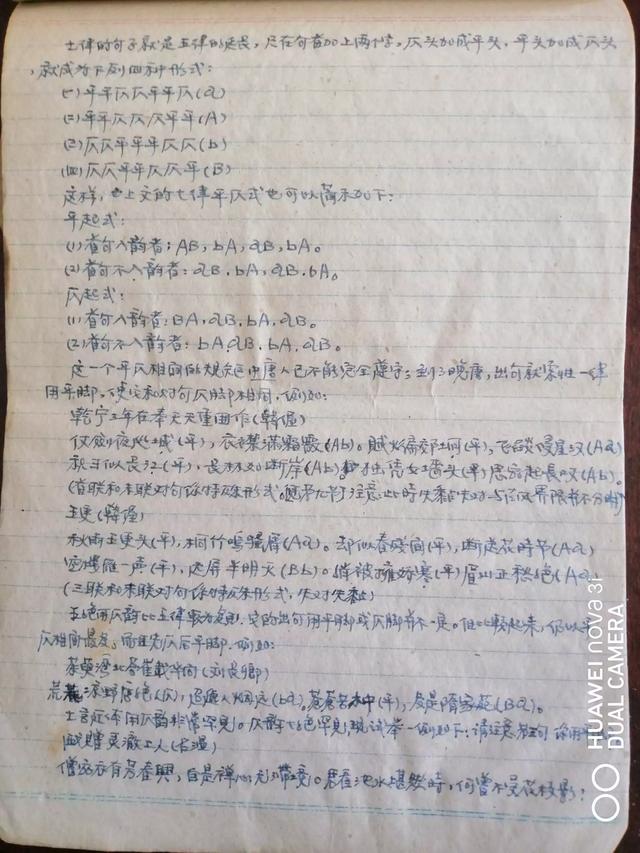 七律的句子就是五律的延长,只在句首加上两个字,仄头加成平头,平头加成仄头
,就成为下列四种形式:
(一)平平仄仄平平仄(a)
(二)平平仄仄仄平平(A)
(三)仄仄平平平仄仄(b)
(四)仄仄平平仄仄平(B)
这样,上文的七律平仄式也可以简示如下:
平起式:
(1)首句入韵者:AB,bA,aB,bA。
(2)首句不入韵者:aB.bA,aB.bA。
仄起式:
(1)首句入韵者:BA,aB.bA,aB。
(2)首句不入韵者:bA.aB.bA.aB。
这一个平仄相间的规定中唐人已不能完全遵守;到了晚唐,出句就索性一律
用平脚,使它和对句仄脚相间,例如:
乾宁三年在奉天重围作(韩偓)
仗剑夜巡城(平),衣襟满霜霰(Ab)。贼火偏郊坰(平),飞焰侵星汉(Aa)
积雪似长江(平),长林如断岸(Ab)。独凭女墙头(平)思家起长叹(Ab)。
(首联和末联对句係特殊形式。
五更(韩偓)
秋雨五更头(平),桐竹鸣骚屑(Aa)。却似春残间(平),断送花时节(Aa)
空楼雁一声(平),远屏半明灭(Bb)。绣被拥娇寒(平)眉山正愁绝(Aa)
(三联和末联对句係特殊形式,失对失黏)
五绝用仄韵比五律较为复杂,它的出句用平脚或仄脚并不一定。但比较起来,仍以平
仄相间最多。而且先仄后平脚。例如:
茱萸湾北答崔载华问(刘长卿)
荒凉野店绝(仄),迢递人烟远(ba)。苍苍古木中(平),多是隋家苑(Ba)。
七言近体用仄韵非常罕见。仄韵七绝罕见,现试举一例如下:请注意
戏赠灵澈上人(吕温)
僧家亦有芳春興,自是禅心无滞境。君看池水堪然时,何曾不受花枝影;
HUAWEI nova 3i
DUAL CAMERA